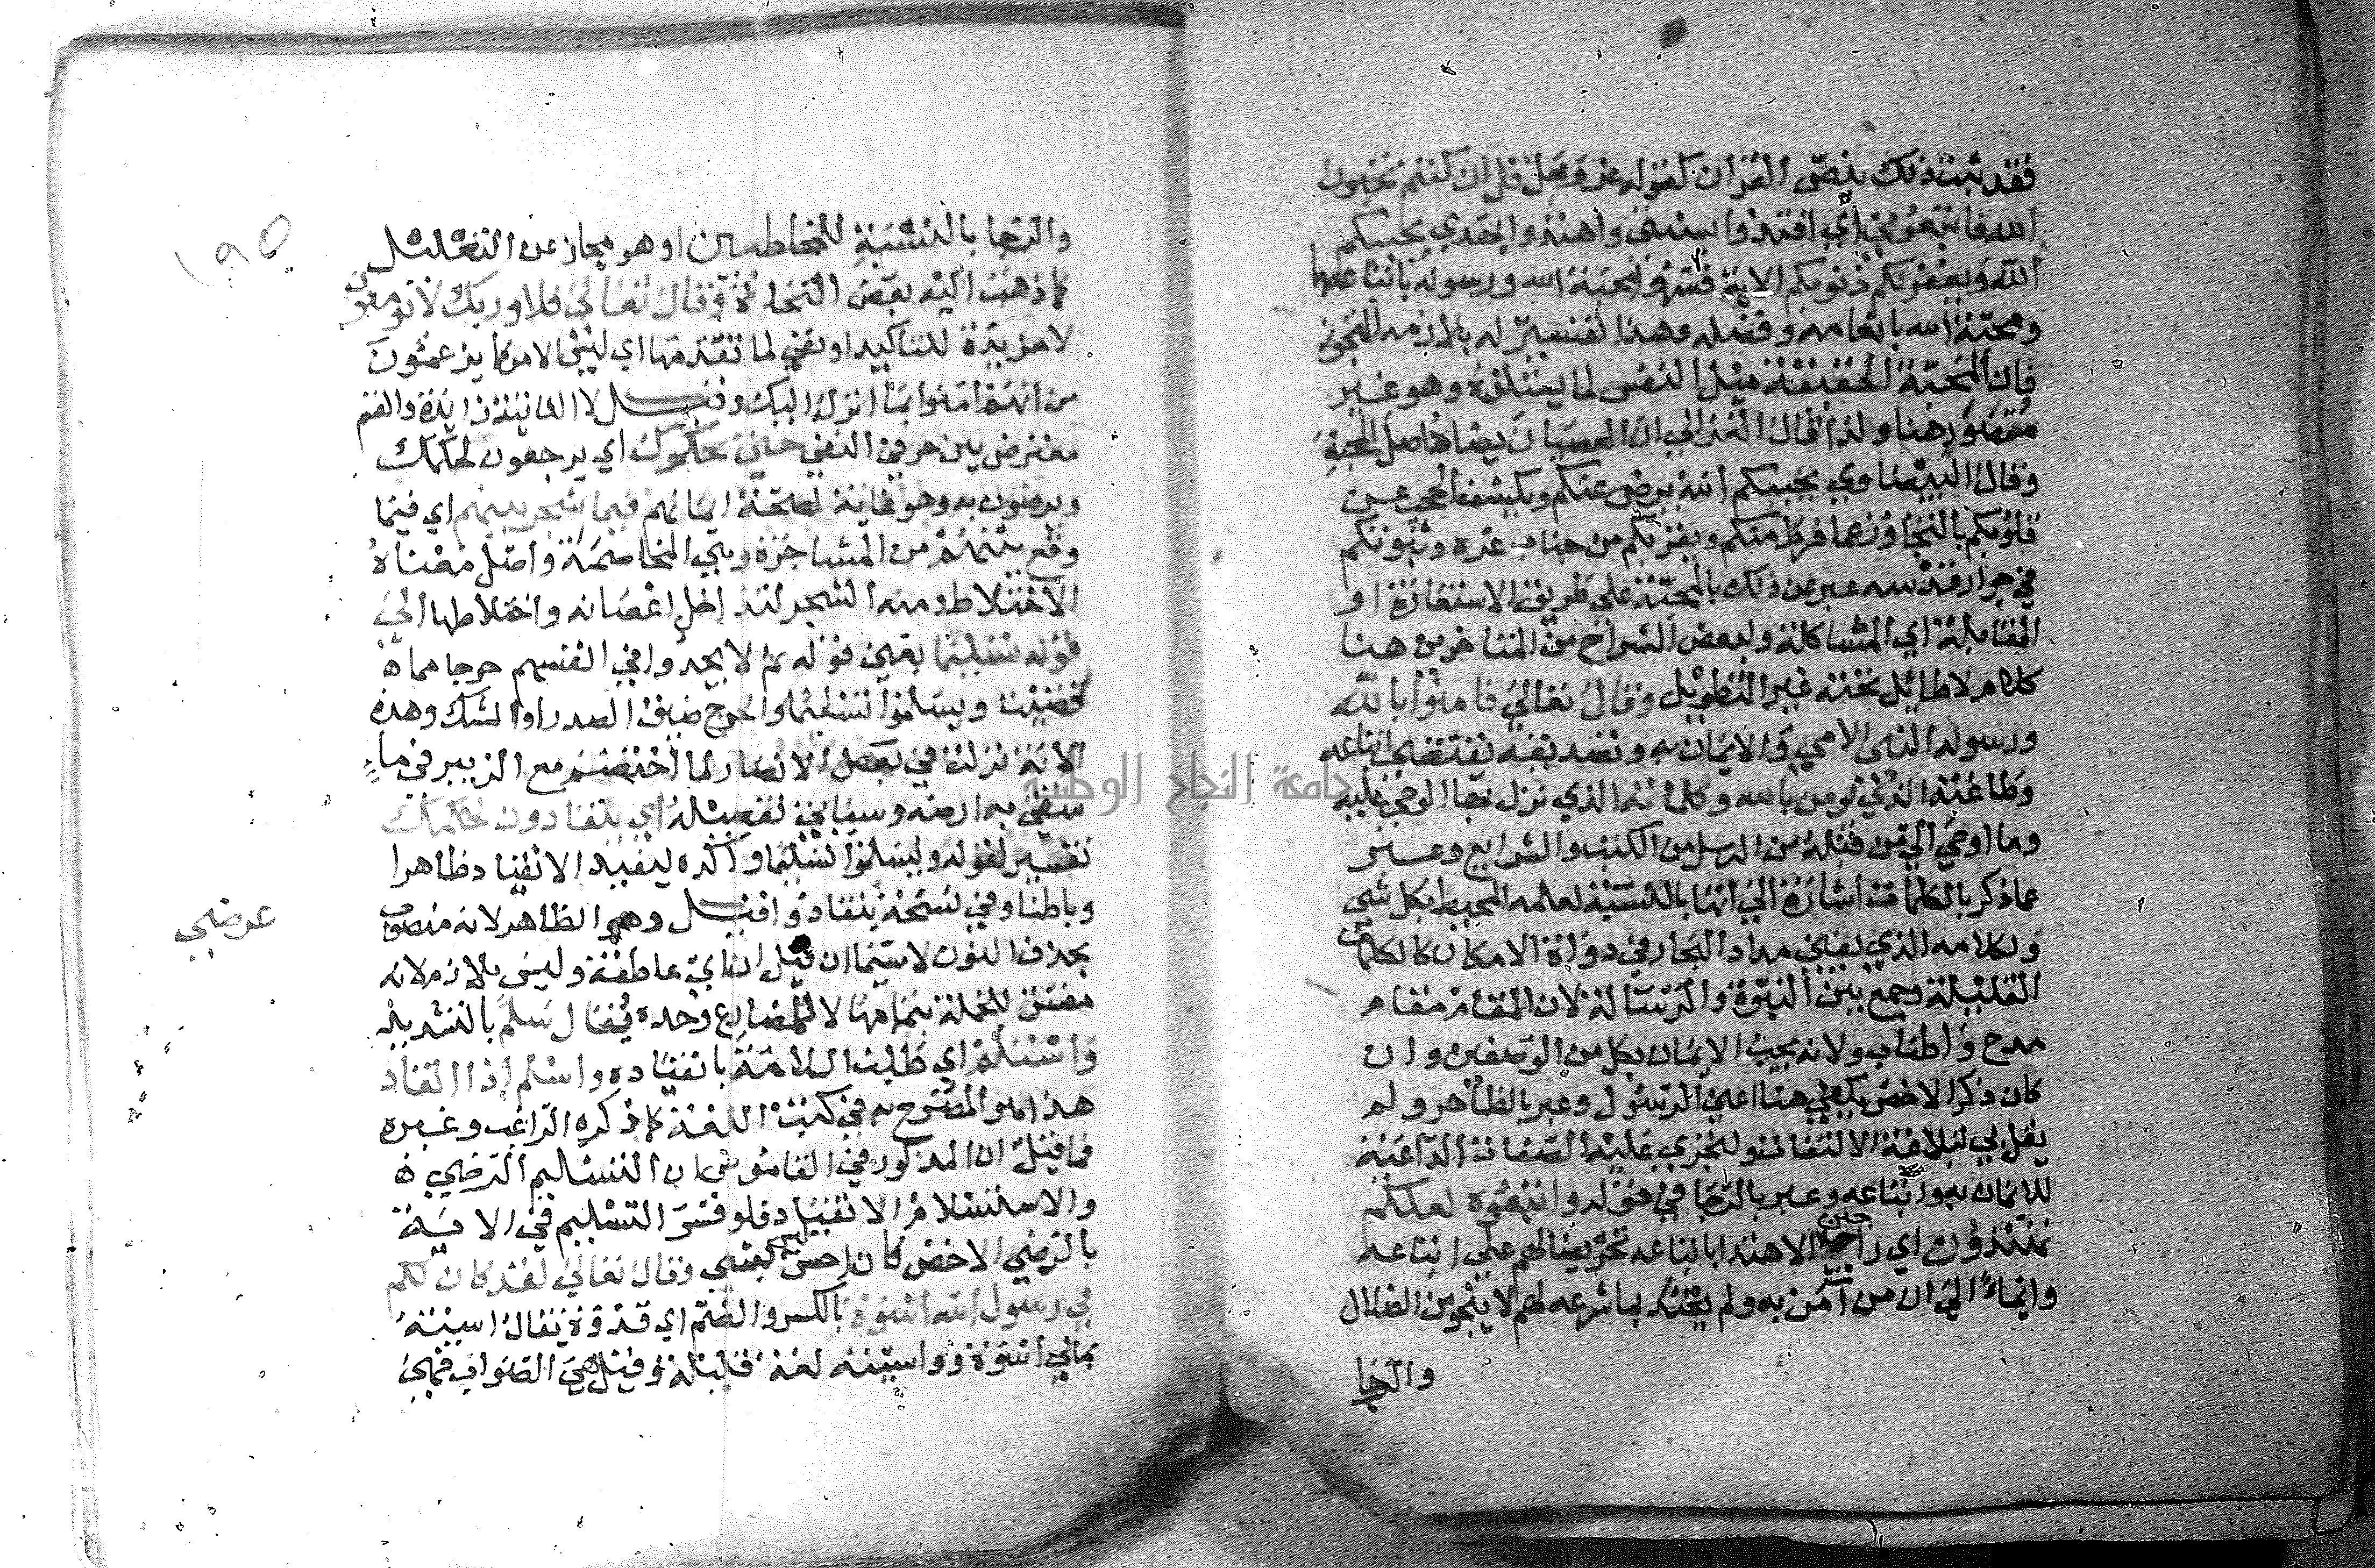 فقد ثبت ذلك بنص القران كقوله عز وجل قل ان كنتم تحبون
الله فاتبعوني اي اقتدوا بسنتي واهتدوا بهديي يحببكم
الله ويغفر لكم ذنوبكم الاية محبة الله ورسوله باتباعها
ومحبة الله بانعامه وفضله وهذا تفسير له بلازمه للتجوز
فان المحبة الحقيقة ميل النفس لما يستلذه وهو غير
متصور هنا ولذا قال الغزالي ان العصيان يضاد اصل المحبة
وقال البيضاوي يحببكم الله يرض عنكم ويكشف الحجب عن
قلوبكم بالتجاوز عما فرط منكم ويقربكم من جناب عزه ويبوئكم
في جوار قدسه عبر عن ذلك بالمحبة على طريق الاستعارة او
المقابلة اي المشاكلة ولبعض الشراح من المتاخرين هنا
كلام لا طائل تحته غير التطويل وقال تعالى فامنوا بالله
ورسوله النبي الامي والايمان به وتصديقه يقتضي اتباعه
وطاعته الذي يومن بالله وكلماته الذي نزل بها الوحي عليه
وما اوحي الى من قبله من الرسل من الكتب والشرايع وعبر
عما ذكر بالكلمات اشارة الى انها بالنسبة لعلمه المحيط بكل شي
ولكلامه الذي يفنى مداد البحار في دواة الامكان كالكلمات
القليلة وجمع بين النبوة والرسالة لان المقام مقام
مدح واطناب ولانه يجب الايمان بكل من الوصفين وان
كان ذكر الاخص يكفي هنا اعني الرسول وعبر بالظاهر ولم
يقل بي لبلاغة الالتفات ولتجري عليه الصفات الداعية
للايمان به واتباعه وعبر بالرجا في قوله واتبعوه لعلكم
تهتدون اي راجين الاهتدا باتباعه تحريضا لهم على اتباعه
وايماء الى ان من آمن به ولم يهتد بما شرعه لهم لا ينجو من الضلال
والرجا
١٩٥
والرجا بالنسبة للمخاطبين او هو مجاز عن التعليل
كما ذهب اليه بعض النحاة وقال تعالى فلا وربك لا يومنون
لا مزيدة للتاكيد او نفي لما تقدمها اي ليس الامر كما يزعمون
من انهم امنوا بما انزل اليك وقيل لا الثانية زايدة والقسم
معترض بين حرفي النفي حتى يحكموك اي يرجعون لحكمك
ويرضون به وهو غاية لصحة ايمانهم فيما شجر بينهم اي فيما
وقع بينهم من المشاجرة وهي المخاصمة واصل معناه
الاختلاط ومنه الشجر لتداخل اغصانه واختلاطها الى
قوله تسليما يعني قوله ثم لا يجدوا في انفسهم حرجا مما
قضيت ويسلموا تسليما والحرج ضيق الصدر او الشك وهذه
الاية نزلت في بعض الانصار لما اختصم مع الزبير في ماء
سقى به ارضه وسياتي تفصيله اي ينقادون لحكمك
تفسير لقوله ويسلموا تسليما واكده ليفيد الانقياد ظاهرا
وباطنا وفي نسخة ينقادوا قيل وهو الظاهر لانه منصوب
بحذف النون لا سيما ان قيل ان اي عاطفة وليس بلازم لانه
مفسر للجملة بتمامها لا للمضارع وحده يقال سلم بالتشديد
واستسلم اي طلب السلامة بانقياده واسلم اذا انقاد
هذا هو المصرح به في كتب اللغة كما ذكره الراغب وغيره
فما قيل ان المذكور في القاموس ان التسليم الرضي
والاستسلام الانقياد فلو فسر التسليم في الاية
بالرضي الاخص كان احسن ليس بشي وقال تعالى لقد كان لكم
في رسول الله اسوة بالكسر والضم اي قدوة يقال اسيته
بمالي اسوة وواسيته لغة قليلة وقيل هي الصواب فمجي
عرضي
جامعة النجاح الوطنية